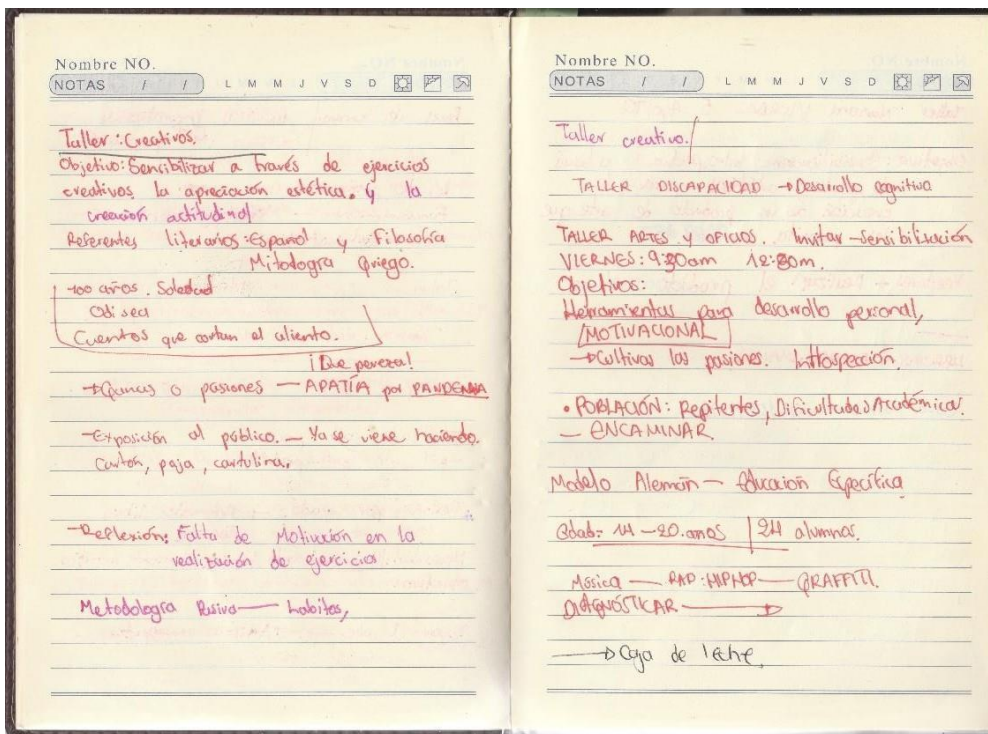 Nombre NO.
NOTAS / / L M M J V S D
Taller: Creativos.
Objetivo: Sensibilizar a través de ejercicios
creativos la apreciación estética. y la
creación actitudinal
Referentes literarios: Español y Filosofía
Mitología Griego.
100 años. Soledad
Odisea
Cuentos que cortan el aliento.
¡Que pereza!
o pasiones — APATÍA por PANDEMIA
- Exposición al público. — Ya se viene haciendo.
Cartón, paja, cartulina.
- Reflexión: Falta de Motivación en la
realización de ejercicios
Metodología — habitos,
Nombre NO.
NOTAS / / L M M J V S D
Taller creativo.
TALLER DISCAPACIDAD → Desarrollo cognitivo
TALLER ARTES y OFICIOS. Invitar - Sensibilización
VIERNES: 9:30am 12:30m.
Objetivos:
Herramientas para desarrollo personal,
MOTIVACIONAL
→ Cultivar las pasiones. Introspección.
• POBLACIÓN: Repitentes, Dificultades Académicas.
— ENCAMINAR.
Modelo Alemán — Educación Específica
Edad: 14 - 20. anos | 24 alumnos.
Música — RAP: HIPHOP — GRAFFITI.
DIAGNÓSTICAR →
→ Caja de leche.